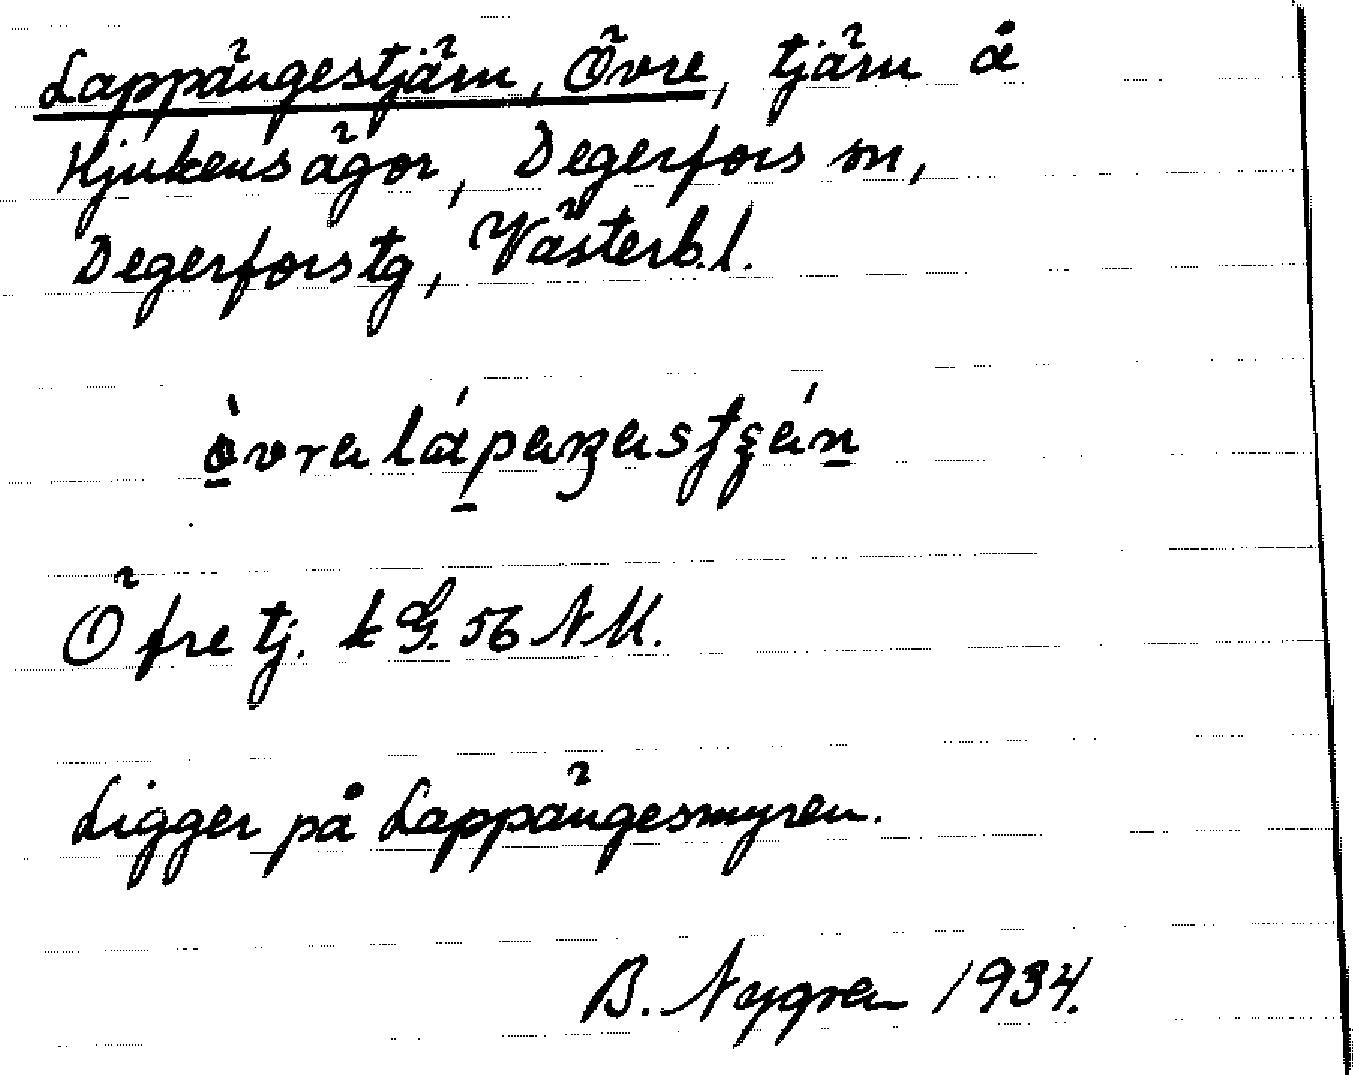 Lappängestjärn, Övre, tjärn å
Hjukens ägor, Degerfors sn,
Degerfors tg, Västerb. l.
òvra lápaŋastʃán
Öfre tj. k G. 56 NM.
Ligger på Lappängesmyren.
B. Nygren 1934.